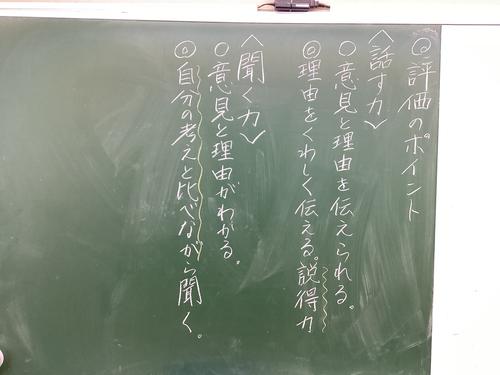 ◎評価のポイント
〈話す力〉
○意見と理由を伝えられる。
◎理由をくわしく伝える。説得力
〈聞く力〉
○意見と理由がわかる。
◎自分の考えと比べながら聞く。